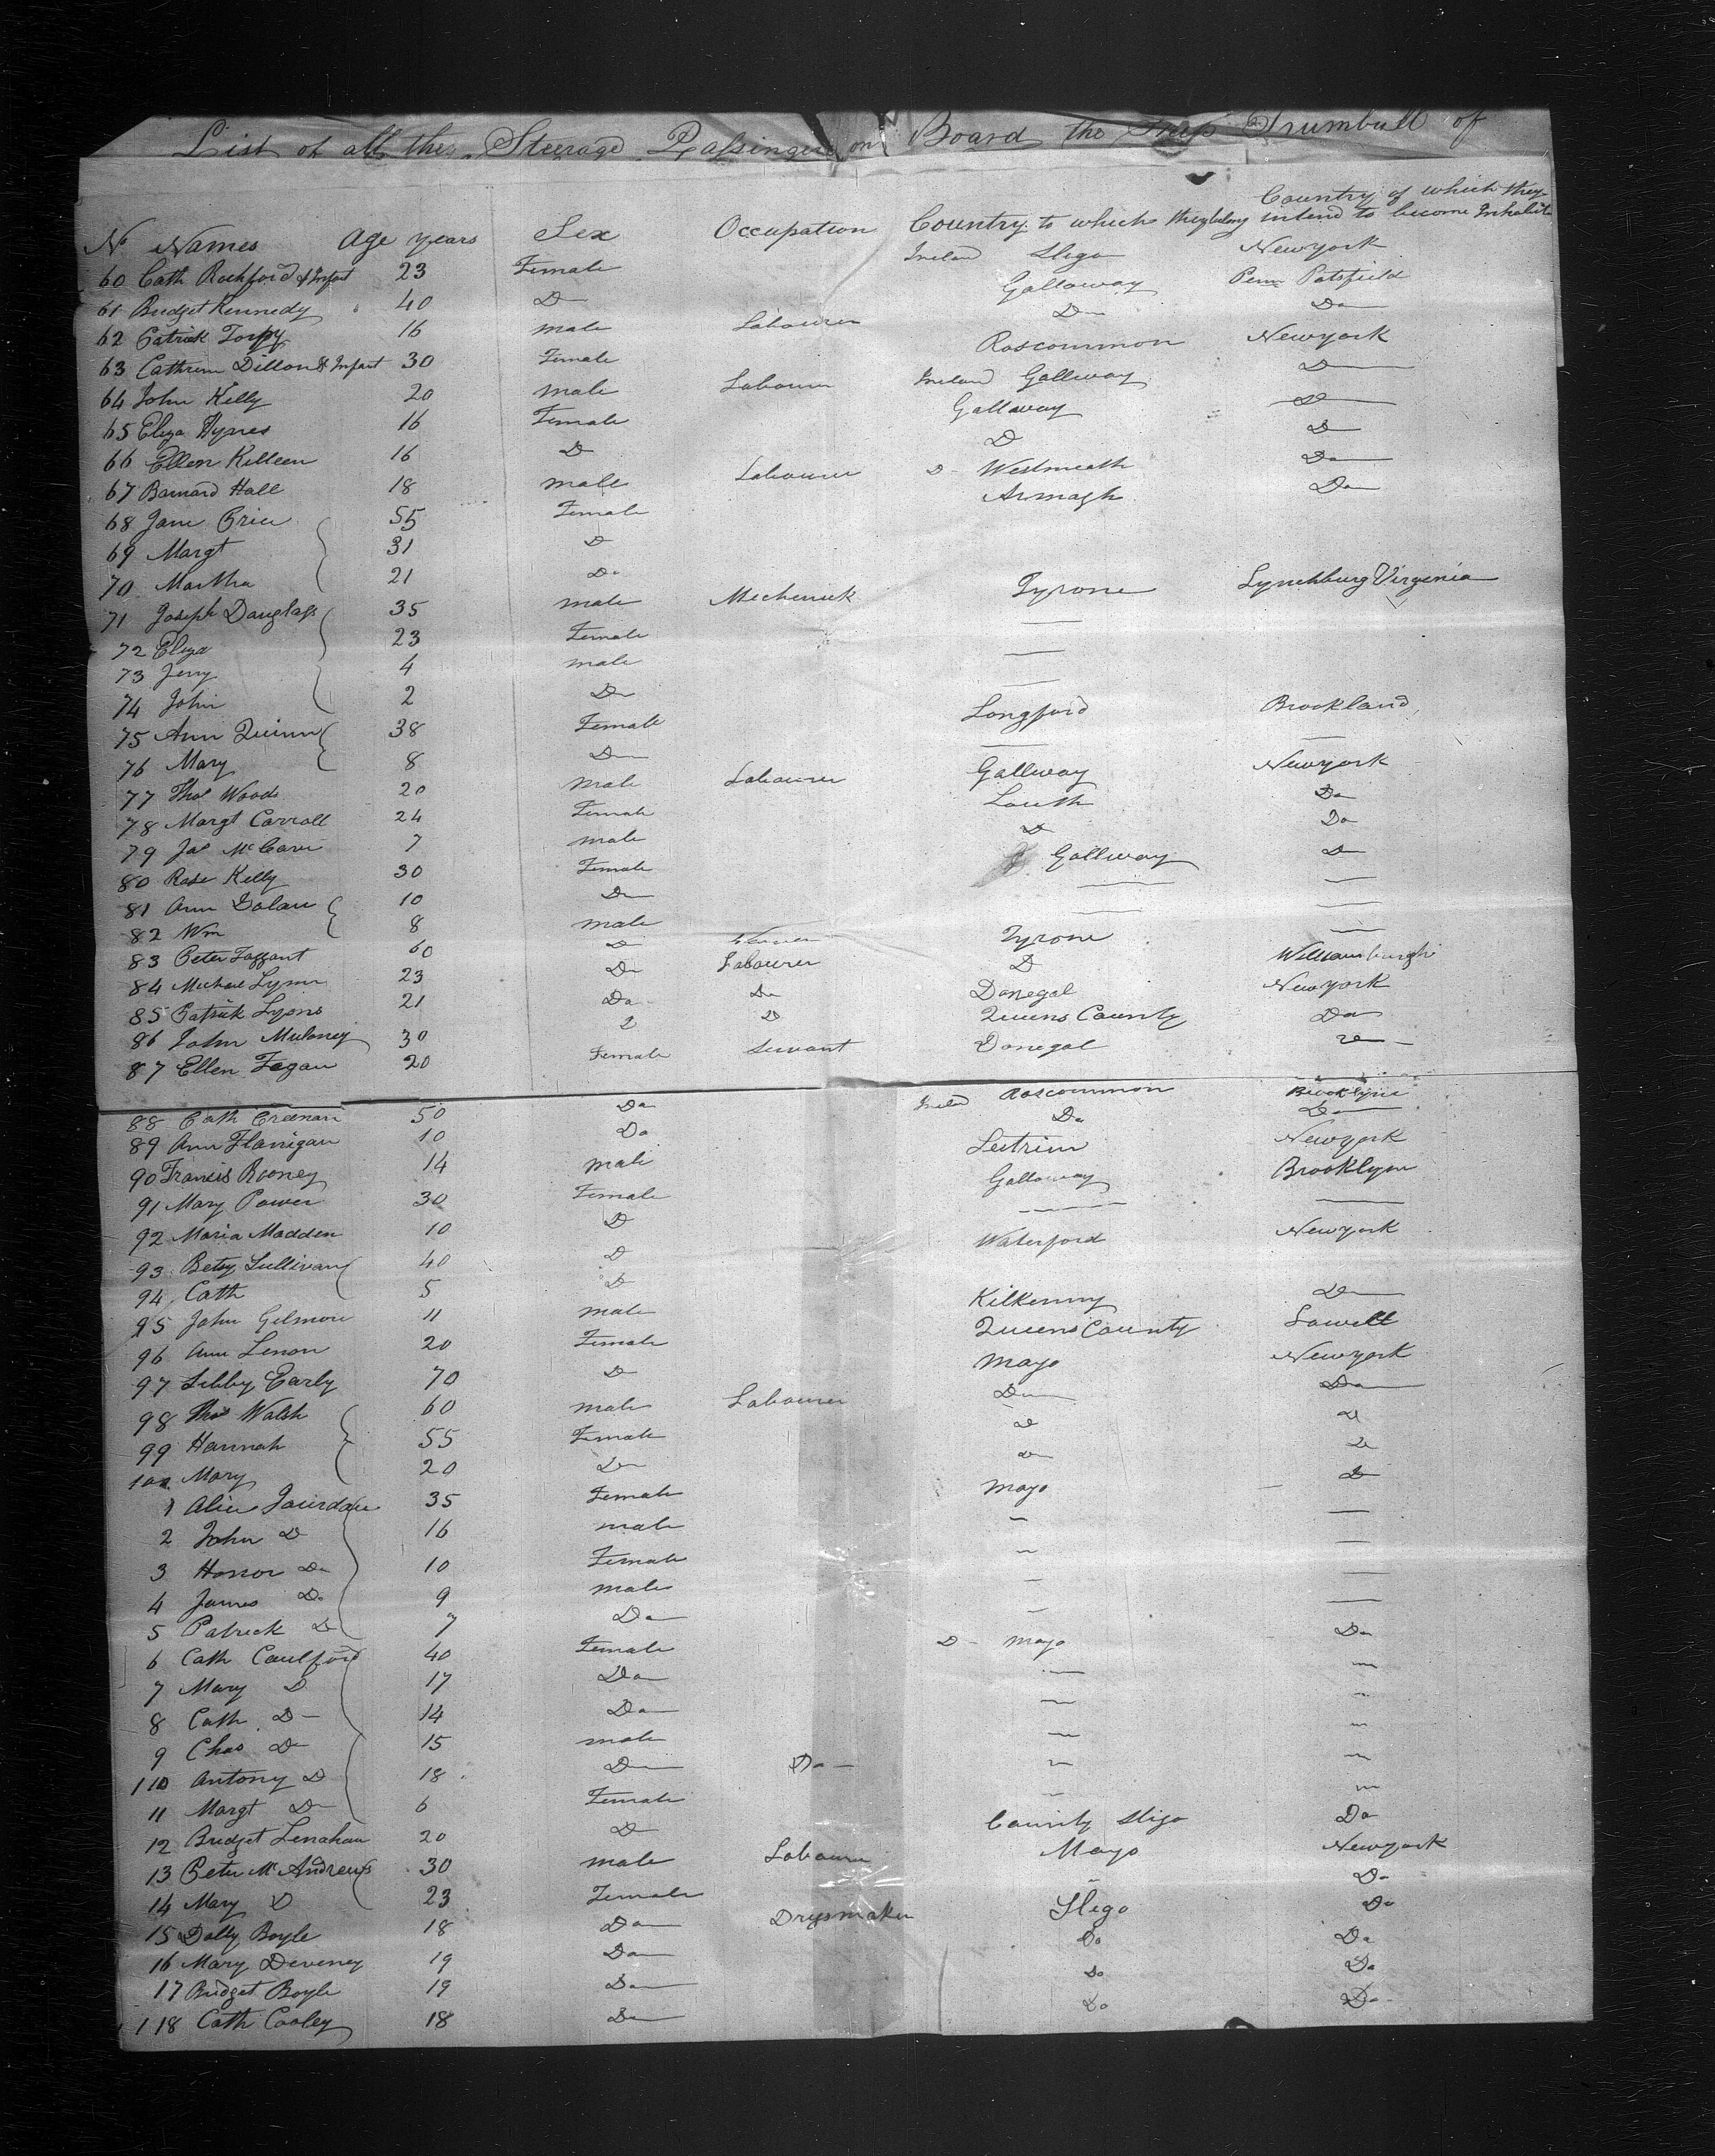 List of all the Steerage Passingers on Board the Ship Trumbull of
Country of which they
No Names Age years Sex Occupation Country to which they belong intend to become Inhabit
60 Cath Rochford & Infant 23 Female Ireland Sligo Newyork
61 Bridget Kennedy 40 D Gallaway Penn Potsfield
62 Patrick Torpy 16 male Labourer D Do
63 Cathrine Dillon & Infant 30 Female Roscommon Newyork
64 John Kelly 20 male Labourer Ireland Gallway D
65 Eliza Hynes 16 Female Gallaway D
66 Ellen Killeen 16 D D D
67 Barnard Hall 18 male Labourer D Westmeath Do
68 Jane Brice 55 Female Armagh Do
69 Margt 31 D
70 Martha 21 Do
71 Joseph Douglass 35 male Mechenick Tyrone Lynchburg Virginia
72 Eliza 23 Female —
73 Jerry 4 male —
74 John 2 Do —
75 Ann Quinn 38 Female Longford Brookland
76 Mary 8 Do — —
77 Thos Woods 20 male Labourer Gallway Newyork
78 Margt Carroll 24 Female Louth Do
79 Jas McCave 7 male D Do
80 Rose Kelly 30 Female Gallway D
81 Ann Dolan 10 Do — —
82 Wm 8 male — —
83 Peter Taggant 60 D Tyrone —
84 Micheal Lynn 23 Do Labourer D Williamsburgh
85 Patrick Lyons 21 Do Do Donegal Newyork
86 John Muloney 30 D D Queens County Do
87 Ellen Fagan 20 Female Servant Donegal D
88 Cath Creenan 50 Do Ireld Roscommon Brooklyne
89 Ann Flanigan 10 Do Do Do
90 Francis Rooney 14 male Leitrim Newyork
91 Mary Power 30 Female Gallaway Brooklyne
92 Maria Madden 10 D — —
93 Betsy Sullivan 40 D Waterford Newyork
94 Cath 5 D
95 John Gilmore 11 male Kilkenny D
96 Ann Lenon 20 Female Queens County Lowell
97 Libby Early 70 D Mayo Newyork
98 Thos Walsh 60 male Labourer Do Do
99 Hannah 55 Female D D
100 Mary 20 Do D D
1 Alice Jourdan 35 Female Mayo D
2 John D 16 male — —
3 Honor Do 10 Female — —
4 James Do 9 male — —
5 Patrick D 7 Do — —
6 Cath Caulford 40 Female D Mayo Do
7 Mary D 17 Do — —
8 Cath D 14 Do — —
9 Chas D 15 male — —
110 Antony D 18 D Do — —
11 Margt D 6 Female — —
12 Bridget Lenahan 20 D County Sligo Do
13 Peter McAndrews 30 male Labourer Mayo Newyork
14 Mary D 23 Female — Do
15 Dolly Boyle 18 Do Dressmaker Sligo Do
16 Mary Deveney 19 Do Do Do
17 Bridget Boyle 19 Do Do Do
118 Cath Cooley 18 Do Do Do